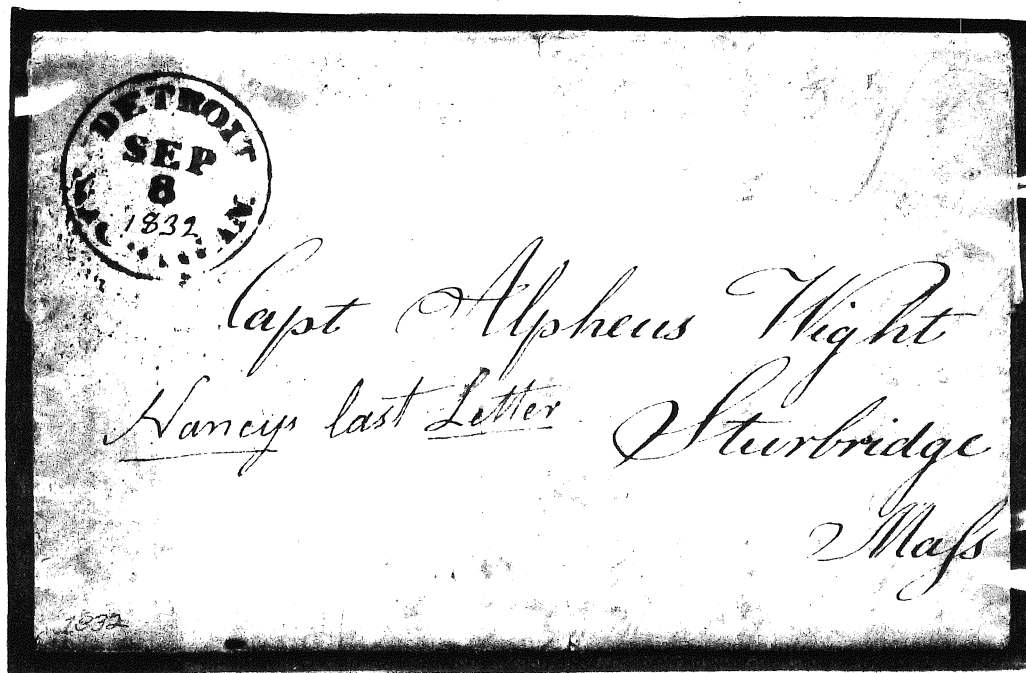 DETROIT
SEP
8
1832
Capt Alpheus Wight
Nancys last Letter
Sturbridge
Maſs
1832